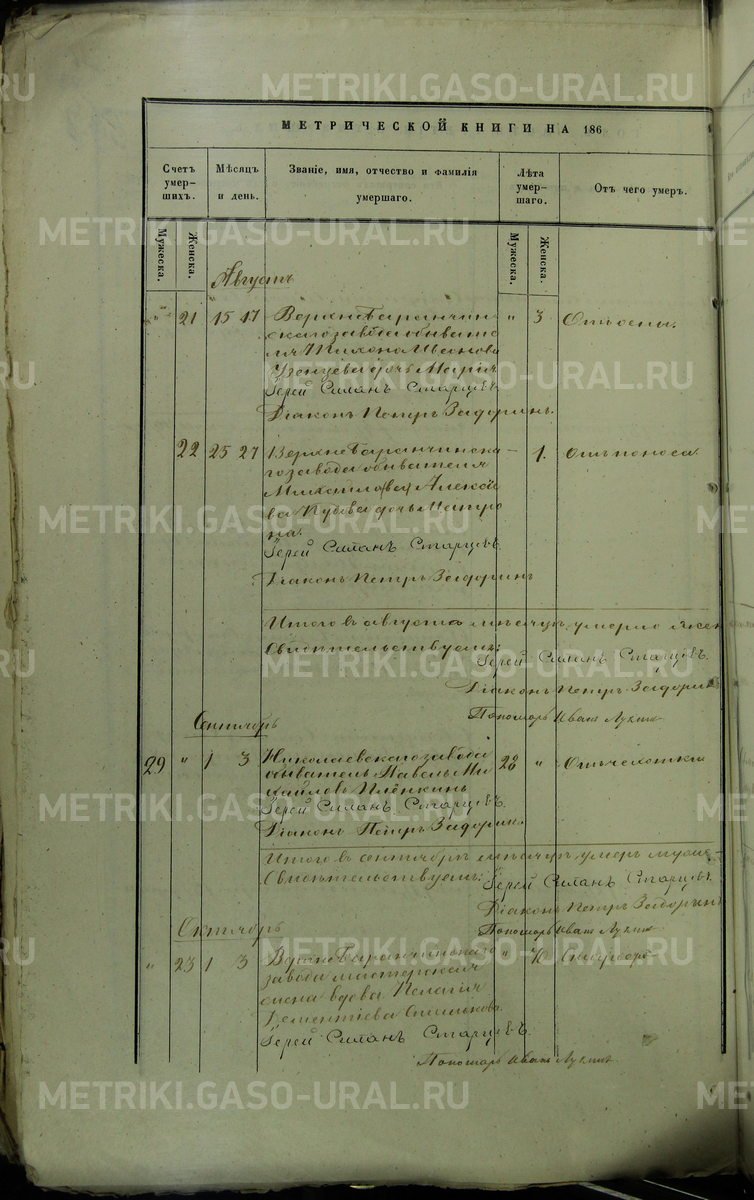 METRIKI.GASO-URAL.RU
МЕТРИЧЕСКОЙ КНИГИ НА 186
Счетъ умер- шихъ.
Мѣсяцъ и день.
Званіе, имя, отчество и фамилія умершаго.
Лѣта умер- шаго.
Отъ чего умеръ.
Мужеска.
Женска.
Мужеска.
Женска.
Августъ
" 21 15 17 Верхнебаранчин " 3 Отъ оспы.
скаго завода обывате
ля Тихона Иванова
дочь Марія
Іерей Силанъ Старцевъ.
Діаконъ Петръ Задоринъ.
22 25 27 Верхнебаранчинска — 1. Отъ поноса
го завода обывателя
Михаила Алексѣ
ва дочь Матро
на.
Іерей Силанъ Старцевъ.
Діаконъ Петръ Задоринъ
Итого въ августѣ мѣсяцѣ умерло
Свидѣтельствуемъ:
Іерей Силанъ Старцевъ.
Діаконъ Петръ Задоринъ
Пономарь Иванъ Лукин
Сентябрь
29 " 1 3 Николаевскаго завода 28 " Отъ чахотки
обыватель Павелъ Ми
хайловъ Плёнкинъ
Іерей Силанъ Старцевъ.
Діаконъ Петръ Задоринъ.
Итого въ сентябрѣ мѣсяцѣ умеръ
Свидѣтельствуемъ:
Іерей Силанъ Старцевъ.
Діаконъ Петръ Задоринъ
Пономарь Иванъ Лукин
Октябрь
" 23 1 3 Верхнебаранчинскаго "
завода мастерская
жена вдова Пелагія
Дементіева
Іерей Силанъ Старцевъ.
Пономарь Иванъ Лукин